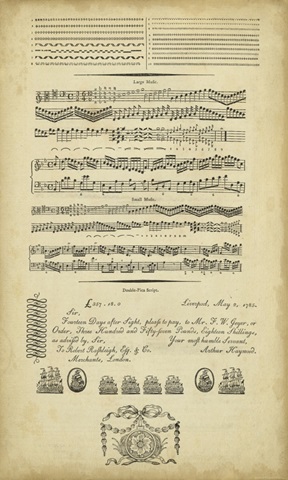 Large Music.
Small Music.
Double-Pica Script.
£357. 18. 0 Liverpool, May 2, 1785.
Sir,
Fourteen Days after Sight, please to pay, to Mr. F. W. Geyer, or
Order, Three Hundred and Fifty-seven Pounds, Eighteen Shillings,
as advised by, Sir, Your most humble Servant,
To Robert Rashleigh, Esq. & Co. Arthur Hayward.
Merchants, London.